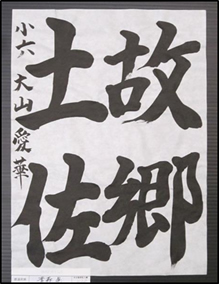 故郷
土佐
小六 大山愛華